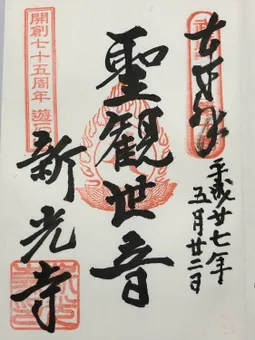 奉拝
平成廿七年
五月廿二日
聖観世音
開創七十五周年
新光寺